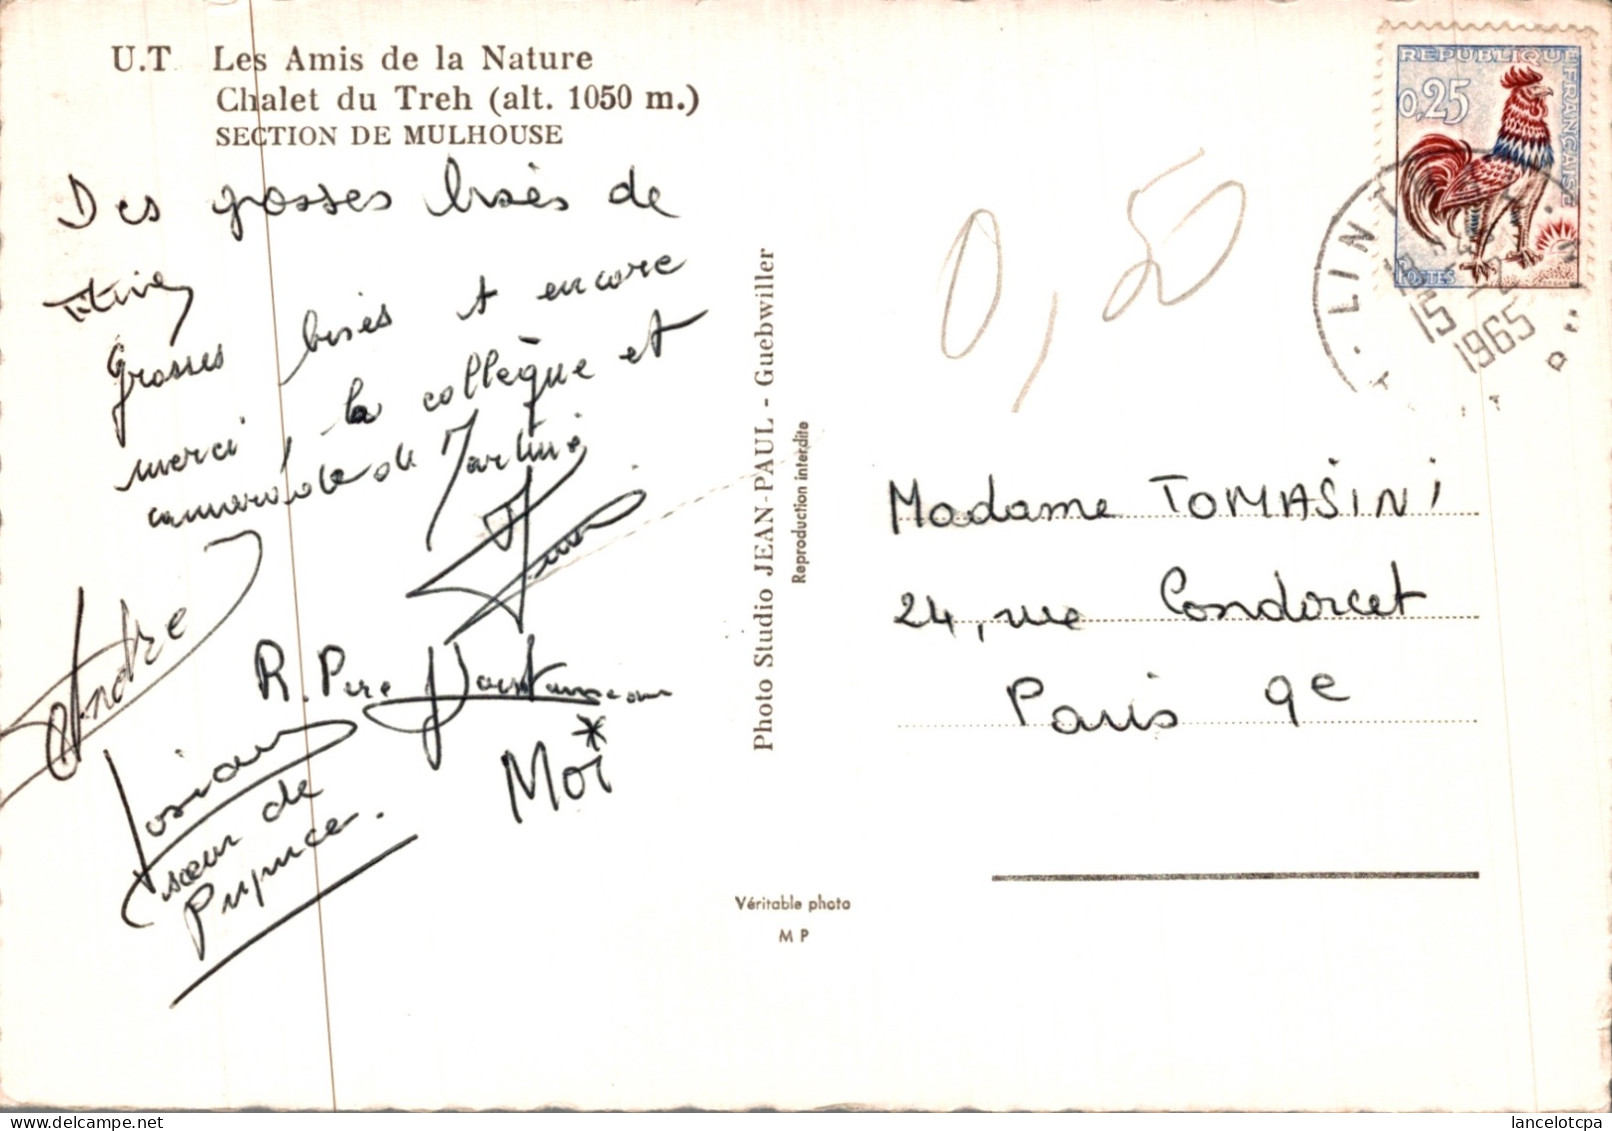 U.T Les Amis de la Nature
Chalet du Treh (alt. 1050 m.)
SECTION DE MULHOUSE
Des grosses bisès de
Grosses bisès et encore
merci, la collègue et
camarade de Martine
André
R. Père
Josiane
sœur de
Pupuce.
Moi
Photo Studio JEAN-PAUL - Guebwiller
Reproduction interdite
Véritable photo
M P
0,50
REPUBLIQUE FRANÇAISE
0,25
POSTES
LINT
15
1965
Madame TOMASINI
24, rue Condorcet
Paris 9e
www.lancelotcpa